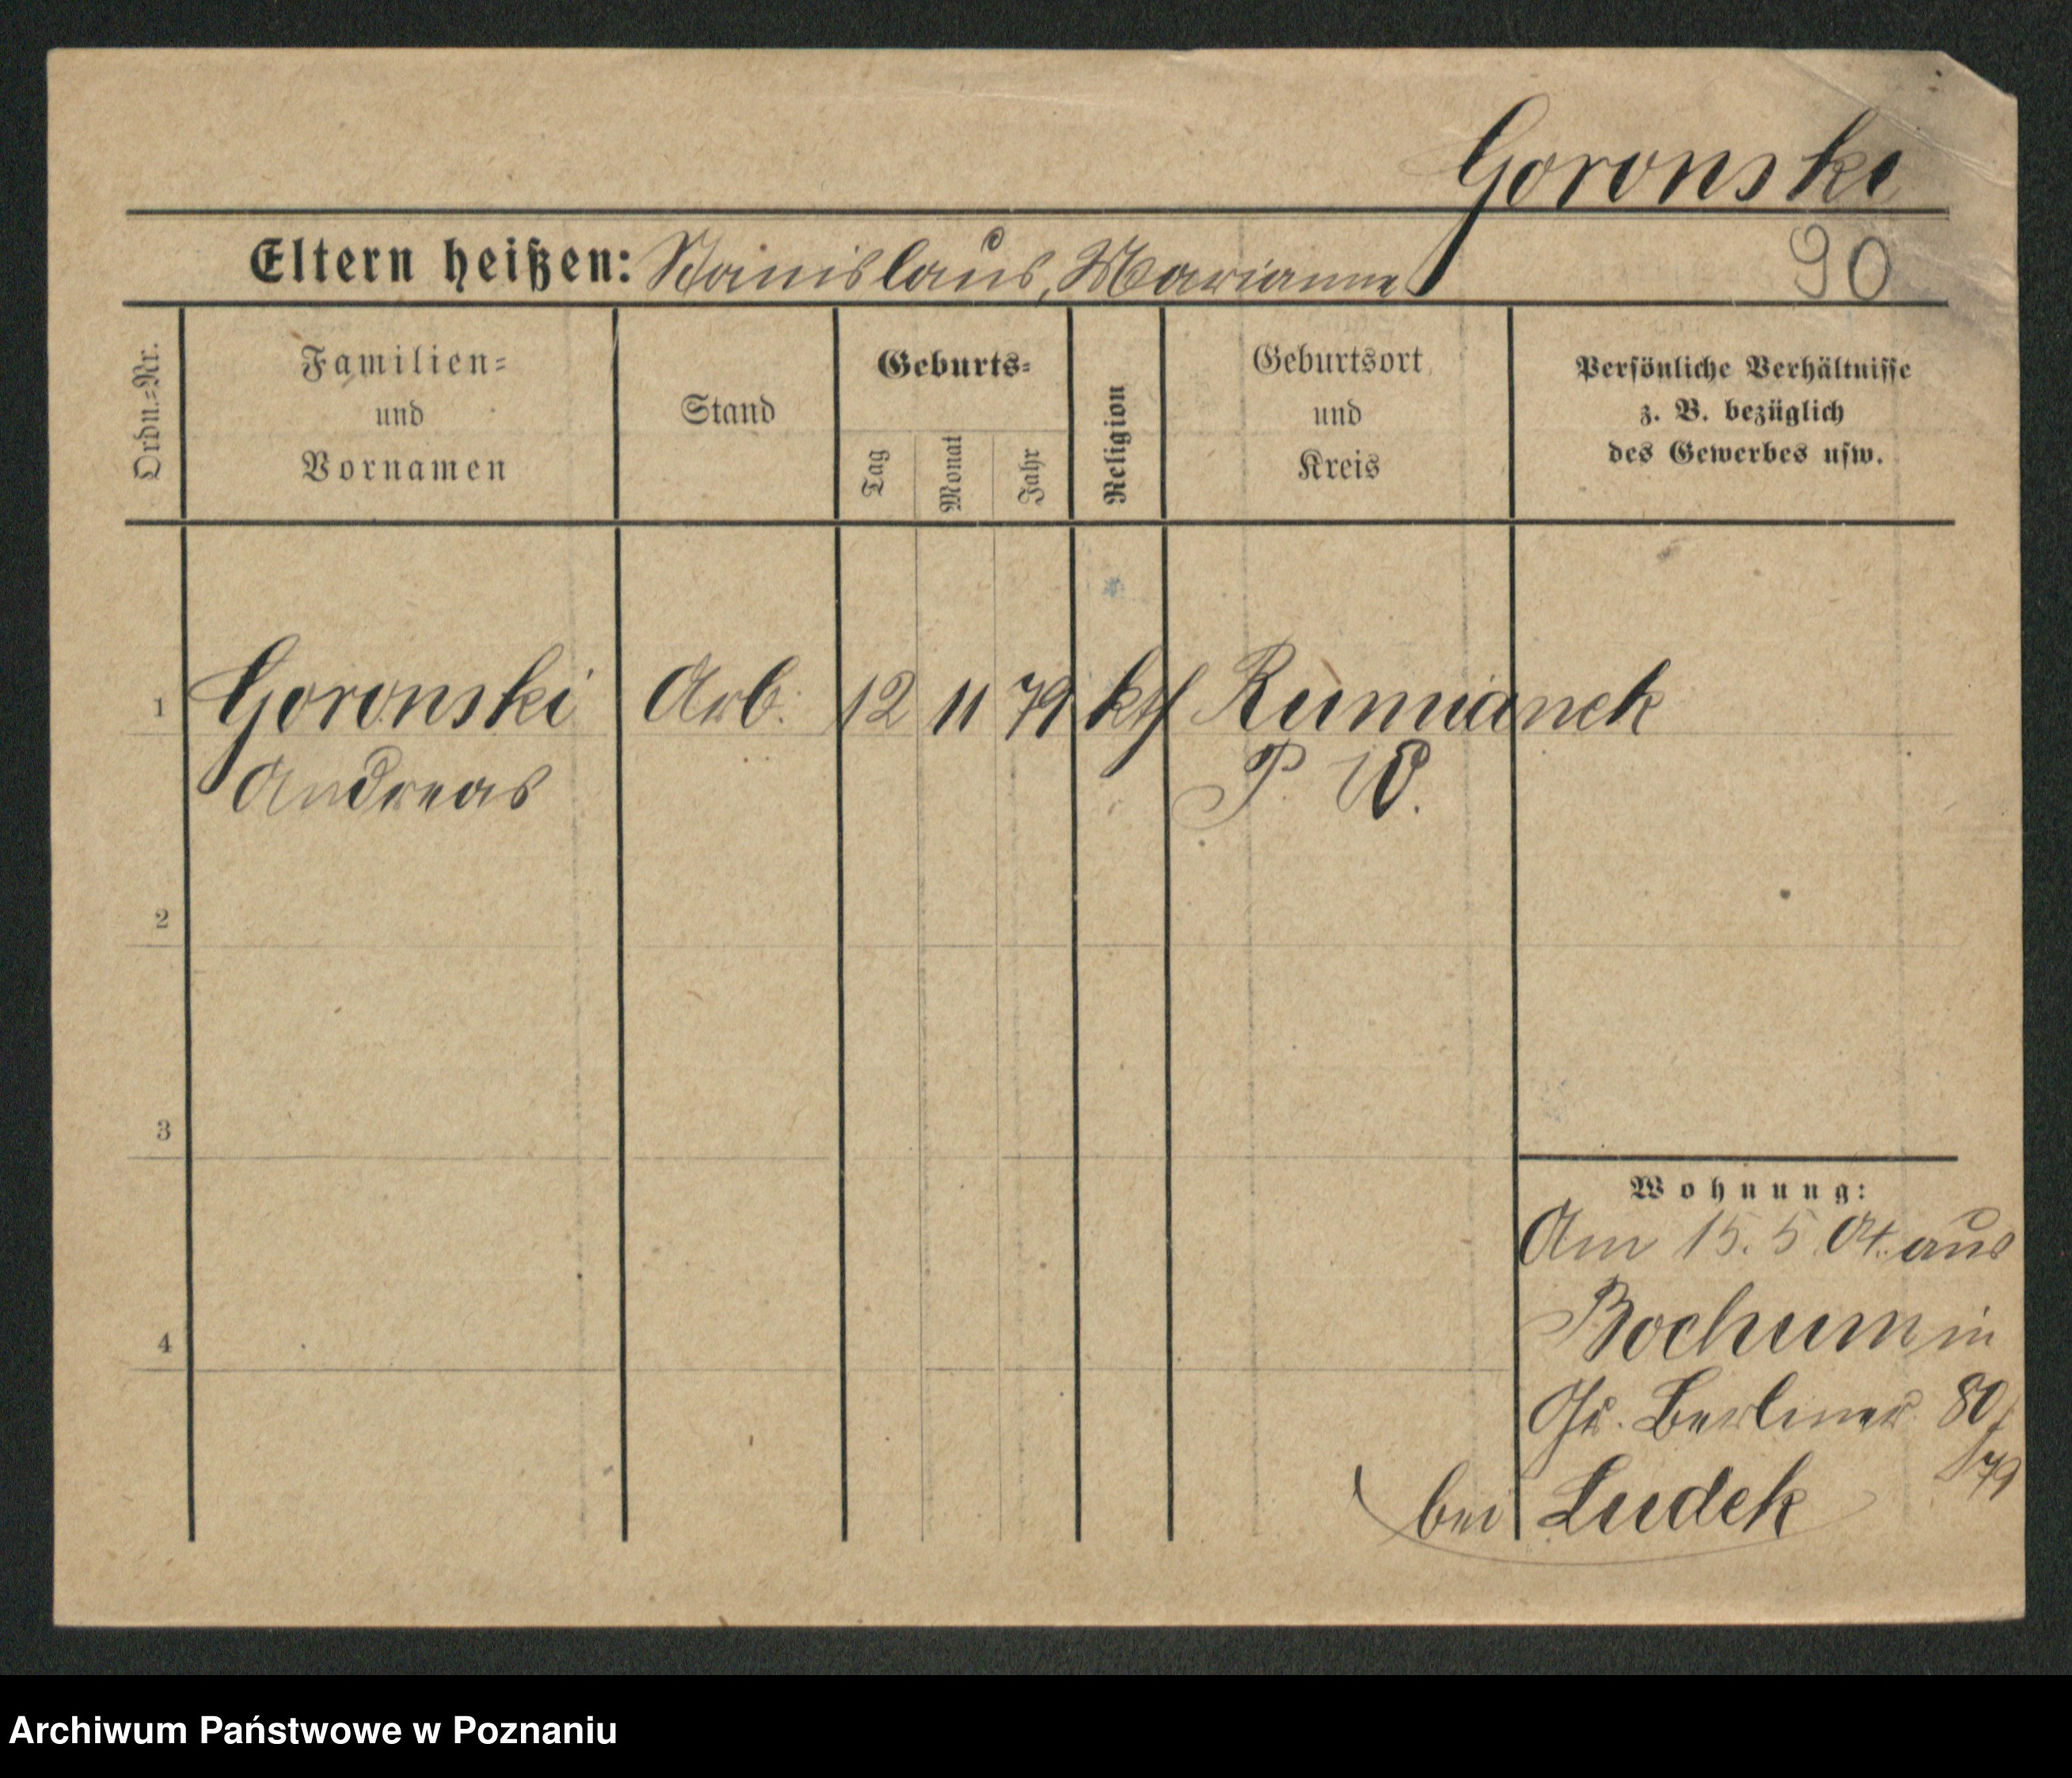 Goronski
Eltern heißen: Stanislaus, Marianne
90
Ordn.-Nr.
Familien-
und
Vornamen
Stand
Geburts-
Tag
Monat
Jahr
Religion
Geburtsort
und
Kreis
Persönliche Verhältnisse
z. B. bezüglich
des Gewerbes usw.
1 Goronski Arb. 12 11 79 kth Rumianek
Andreas P. W.
2
3
4
Wohnung:
Am 15. 5. 04. aus
Bochum in
Gr. Berliner 80/
79
bei Ludek
Archiwum Państwowe w Poznaniu